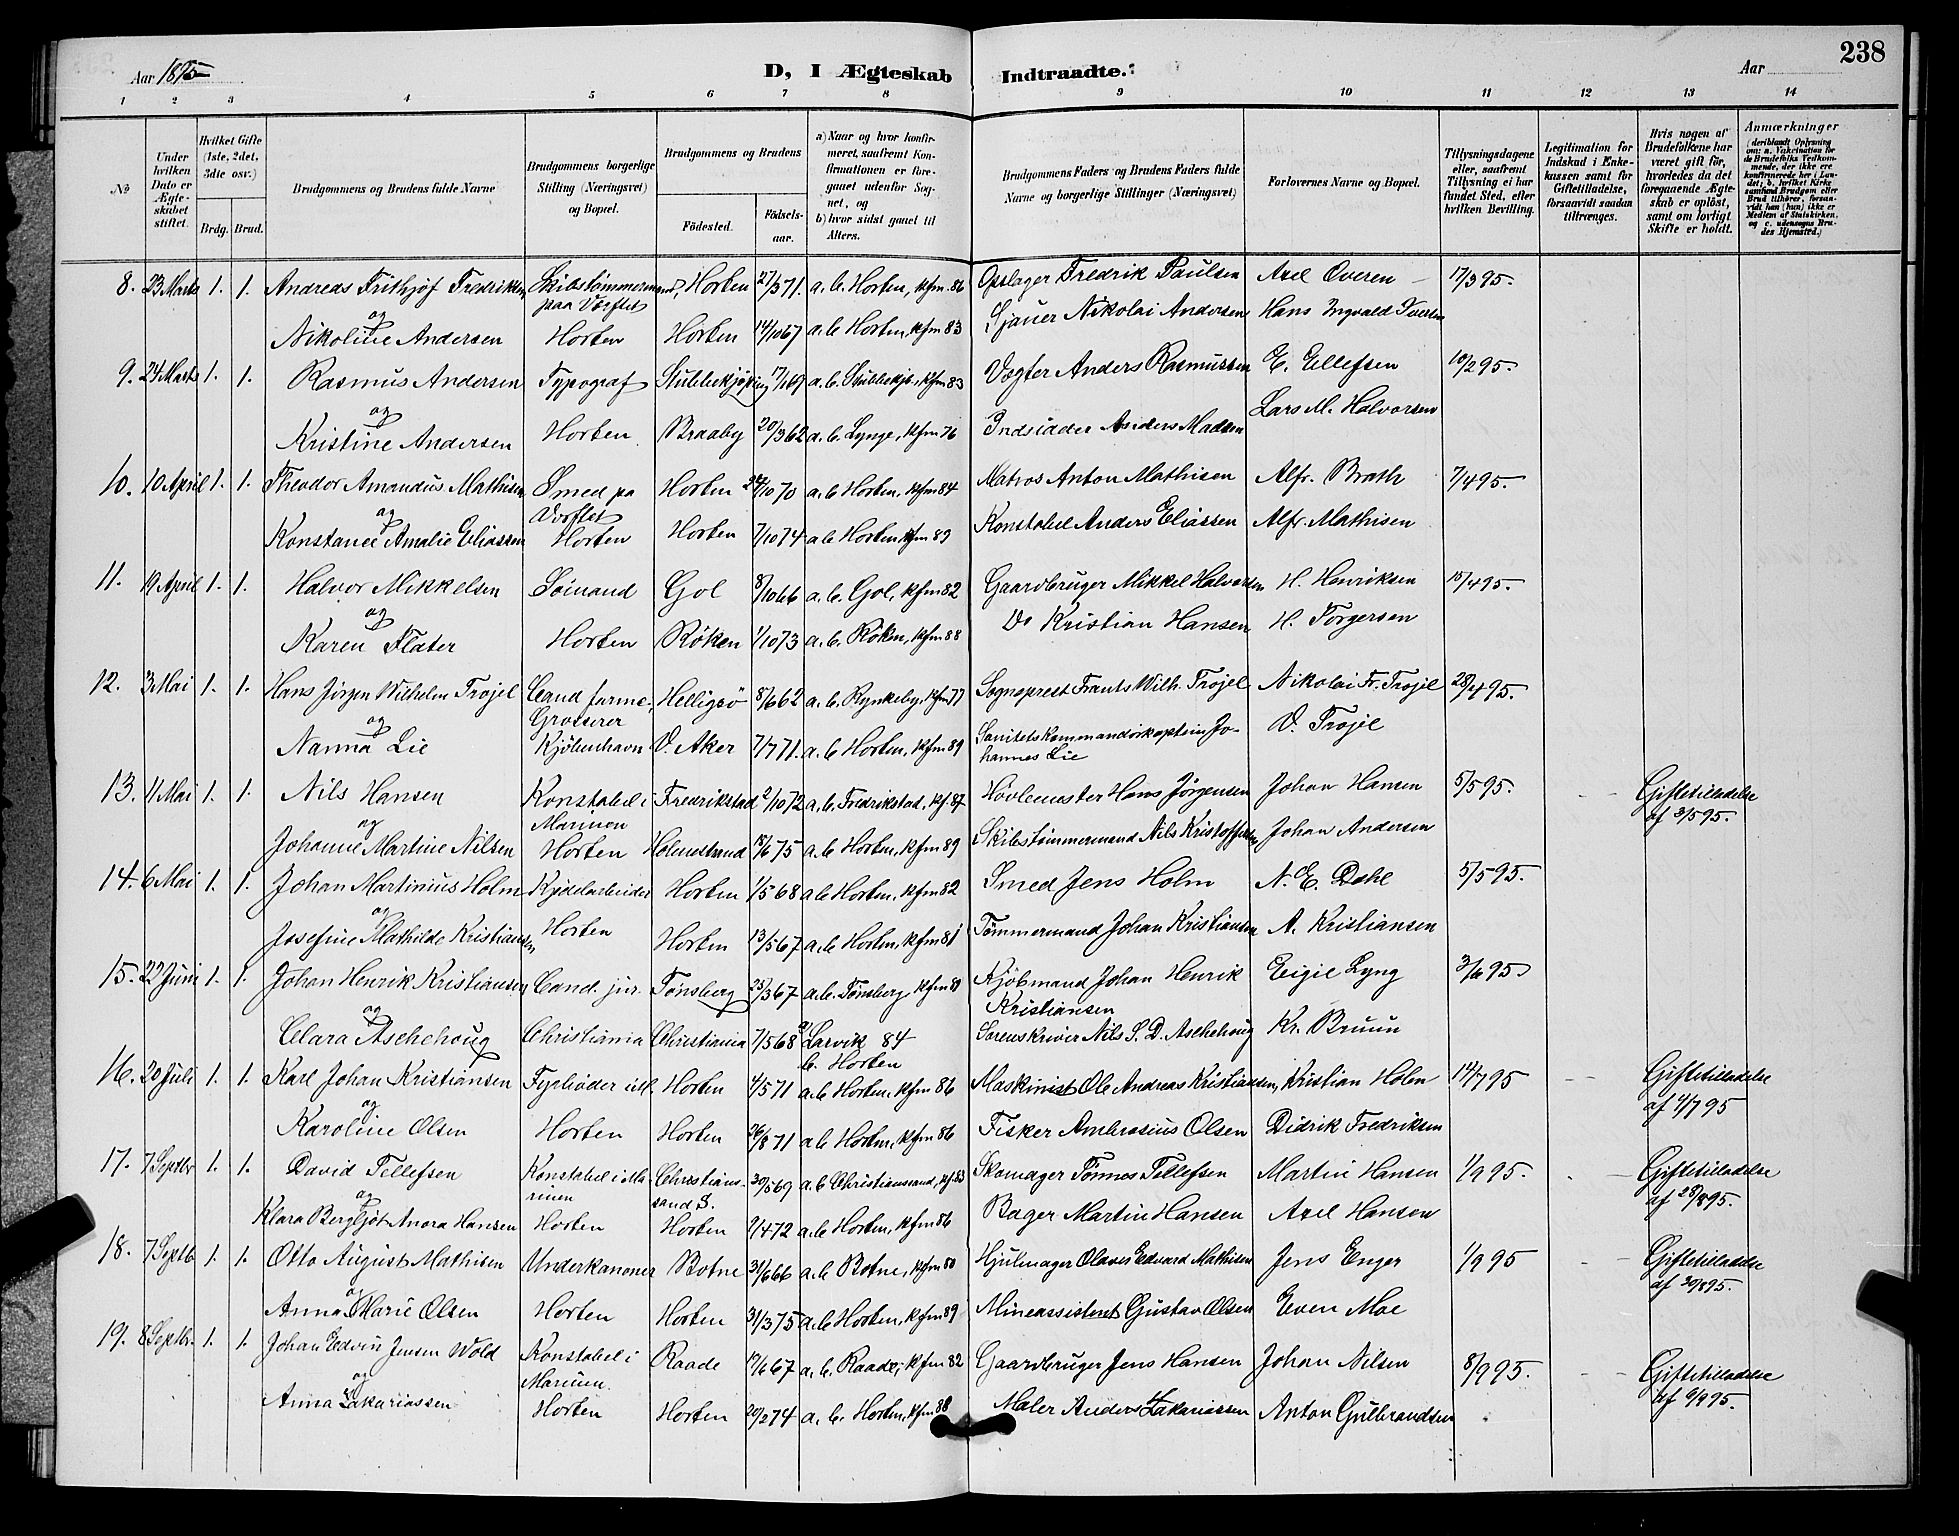 238
Aar 1895
D, I Ægteskab Indtraadte.
Aar
1 2 3 4 5 6 7 8 9 10 11 12 13 14
№
Under hvilken Dato er Ægteskabet stiftet.
Hvilket Gifte (1ste, 2det, 3die osv.)
Brdg. Brud.
Brudgommens og Brudens fulde Navne
Brudgommens borgerlige Stilling (Næringsvei) og Bopæl.
Brudgommens og Brudens
Fødested.
Fødselsaar.
a) Naar og hvor konfirmeret, saafremt Konfirmationen er foregaaet udenfor Sognet, og
b) hvor sidst gaaet til Alters.
Brudgommens Faders og Brudens Faders fulde Navne og borgerlige Stillinger (Næringsvei)
Forlovernes Navne og Bopæl.
Tillysningsdagene eller, saafremt Tillysning ei har fundet Sted, efter hvilken Bevilling.
Legitimation for Indskud i Enkekassen samt for Giftetilladelse, forsaavidt saadan tiltrænges.
Hvis nogen af Brudefolkene har været gift før, hvorledes da det foregaaende Ægteskab er opløst, samt om lovligt Skifte er holdt.
Anmærkninger (deriblandt Oplysning om: a. Vakcination for de Brudefolks Vedkommende, der ikke ere konfirmerede her i Landet; b. hvilket Kirkesamfund Brudgom eller Brud tilhører, forsaavidt han (hun) ikke er Medlem af Statskirken, og c. udensogns Brudes Hjemsted.)
8. 23 Marts 1. 1. Andreas Frithjof Fredriksen Skibstømmermand, Horten 27/3 71. a. b. Horten, kfm. 86 Opslager Fredrik Paulsen Axel Overen 17/3 95.
og paa Værftet
Nikoline Andersen Horten Horten 14/10 67 a. b. Horten, kfm 83 Sjauer Nikolai Andersen Hans Ingvald Iversen
9. 24 Marts 1. 1. Rasmus Andersen Typograf Stubbekjøbing 17/1 69 a. b. Stubbekjb., kfm 83 Vægter Anders Rasmussen E. Ellefsen 10/2 95.
og
Kristine Andersen Horten Braaby 20/3 62 a. b. Lynge, kfm 76 Indsidder Anders Madsen Lars M. Halvorsen
10. 10 April 1. 1. Theodor Amandus Mathisen Smed pa Horten 24/10 70 a. b. Horten, kfm 84 Matros Anton Mathisen Alfr. Brath 7/4 95.
og Værftet
Konstance Amalie Eliassen Horten Horten 7/10 74 a. b. Horten kfm 89 Konstabel Anders Eliassen Alfr. Mathisen
11. 19 April 1. 1. Halvor Mikkelsen Sømand Gol 8/10 66 a. b. Gol, kfm 82 Gaardbruger Mikkel Halvorsen H. Henriksen 15/4 95.
og
Karen Flater Horten Røken 1/10 73 a. b. Røken, kfm 88 Do Kristian Hansen H. Torgersen
12. 3 Mai 1. 1. Hans Jørgen Wilhelm Trojel Cand farme., Helligsø 8/6 62 a. b. Rynkeby, kfm 77 Sogneprest Frants Wilh. Trojel Nikolai Fr. Trojel 28/4 95.
og Grosserer
Nanna Lie Kjøbenhavn V. Aker 7/7 71. a. b. Horten, kfm 89 Sanitetskommandørkaptein Jo- V. Trojel
hannes Lie
13. 11 Mai 1. 1. Nils Hansen Konstabel i Fredrikstad 2/10 72 a. b. Fredrikstad, kf. 87 Høvlemester Hans Jørgensen Johan Hansen 5/5 95. Giftetilladelse
og Marinen af 3/5 95.
Johanne Martine Nilsen Horten Holmestrand 18/6 75 a. b. Horten, kfm 89 Skibstømmermand Nils Kristoffersen Johan Andersen
14. 6 Mai 1. 1. Johan Martinius Holm Kjedelarbeider Horten 1/5 68 a b Horten, kfm 82 Smed Jens Holm N. E. Dahl 5/5 95.
og
Josefine Mathilde Kristiansen Horten Horten 13/5 67 a. b. Horten, kfm 81 Tømmermand Johan Kristiansen A. Kristiansen
15. 22 Juni 1. 1. Johan Henrik Kristiansen Cand. jur. Tønsberg 23/3 67 a. b. Tønsberg kfm 80 Kjøbmand Johan Henrik Eigil Lyng 3/6 95
og Kristiansen
Clara Aschehoug Christiania Christiania 7/5 68 a. Larvik 84 Sorenskriver Nils S. D. Aschehoug Kr. Bruun
b. Horten
16. 20 Juli 1. 1. Karl Johan Kristiansen Fyrbøder Horten 4/5 71 a. b. Horten, kfm 86 Maskinist Ole Andreas Kristiansen, Kristian Holm 14/7 95 Giftetilladelse
og af 4/7 95
Karoline Olsen Horten Horten 26/8 71 a. b. Horten, kfm 86 Fisker Ambrosius Olsen Didrik Fredriksen
17. 7 Septbr 1. 1. David Tellefsen Konstabel i Ma- Christians- 30/5 69 a. b. Christianssand, kf. 83 Skomager Tønnes Tellefsen Martin Hansen 1/9 95. Giftetilladelse
og rinen sand S. af 28/8 95.
Klara Bergljot Anora Hansen Horten Horten 9/4 72 a. b. Horten, kfm 86 Bager Martin Hansen Axel Hansen
18. 7 Septb 1. 1. Otto August Mathisen Underkanoner Botne 31/6 66 a. b. Botne, kfm 80 Hjulmager Olaves Edvard Mathisen Jens Enger 1/9 95 Giftetilladelse
og af 30/8 95.
Anna Marie Olsen Horten Horten 31/3 75 a. b. Horten, kfm 89 Mineassistent Gustav Olsen Even Moe
19. 8 Septb. 1. 1. Johan Edvin Jensen Wold Konstabel i Raade 19/6 67 a. b. Raade, kfm 82 Gaardbruger Jens Hansen Johan Nilsen 8/9 95. Giftetilladelse
og Marinen. af 6/9 95.
Anna Zakariassen Horten Horten 20/2 74 a. b. Horten, kfm 88 Maler Anders Zakariassen Anton Gulbrandsen